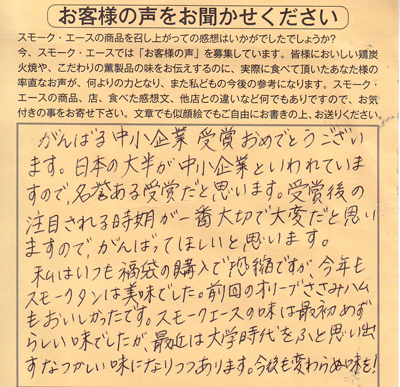 お客様の声をお聞かせください
スモーク・エースの商品を召し上がっての感想はいかがでしたでしょうか?
今、スモーク・エースでは「お客様の声」を募集しています。皆様においしい鶏炭
火焼や、こだわりの薫製品の味をお伝えするのに、実際に食べて頂いたあなた様の
率直なお声が、何よりの力となり、また私どもの今後の参考になります。スモーク・
エースの商品、店、食べた感想文、他店との違いなど何でもありですので、お気
付きの事をお寄せ下さい。文章でも似顔絵でもご自由にお書きの上、お送りください。
がんばる中小企業 受賞おめでとうござい
ます。日本の大半が中小企業といわれていま
すので、名誉ある受賞だと思います。受賞後の
注目される時期が一番大切で大変だと思い
ますので、がんばってほしいと思います。
私はいつも福袋の購入で恐縮ですが、今年も
スモークタンは美味でした。前回のオリーブささみハム
もおいしかったです。スモークエースの味は最初めず
らしい味でしたが、最近は大学時代をふと思い出
すなつかしい味になりつつあります。今後も変わらぬ味を!